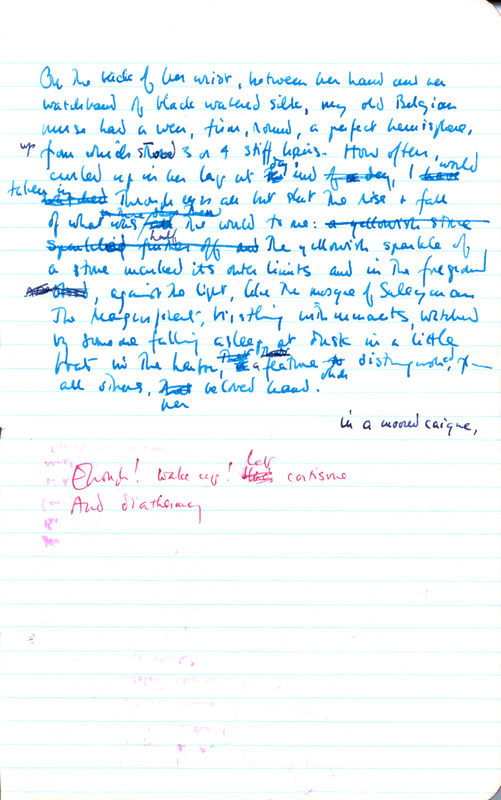 On the back of her wrist, between her hand and her
watchband of black watered silk, my old Belgian
nurse had a wen, firm, round, a perfect hemisphere,
up from which stood 3 or 4 stiff hairs. How often, would
curled up in her lap at day's end of a day, I have
taken in through eyes all but shut the rise & fall
of what was then the world to me: a yellowish stone
sparkled further off and half the yellowish sparkle of
a stone marked its outer limits and in the foreground
stood, against the light, like the mosque of Suleyman
the Magnificent, bristling with minarets, watched
by someone falling asleep at dusk in a little
boat in the harbor, a feature which distinguished, from
all others, that beloved hand.
her
in a moored caique,
Enough! Wake up! Let
cortisone
And diathermy